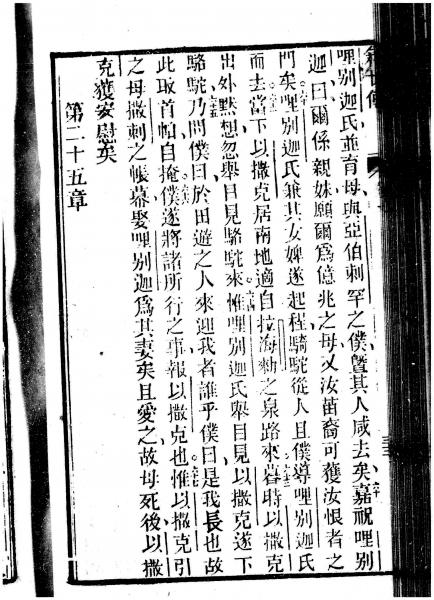 哩别迦氏並育母與亞伯剌罕之僕曁其人咸去矣嘉祝哩别
迦曰爾係親妹願爾爲億兆之母又汝苗裔可獲汝恨者之
門矣哩别迦氏兼其女婢遂起程騎駝從人且僕導哩别迦氏
而去當下以撒克居南地適自拉海勑之泉路來暮時以撒克
出外默想忽舉目見駱駝來惟哩别迦氏舉目見以撒克遂下
駱駝乃問僕曰於田遊之人來迎我者誰乎僕曰是我長也故
此取首帕自掩僕遂將諸所行之事報以撒克也惟以撒克引
之母撒剌之帳幕娶哩别迦爲其妻矣且愛之故母死後以撒
克獲安慰矣
第二十五章